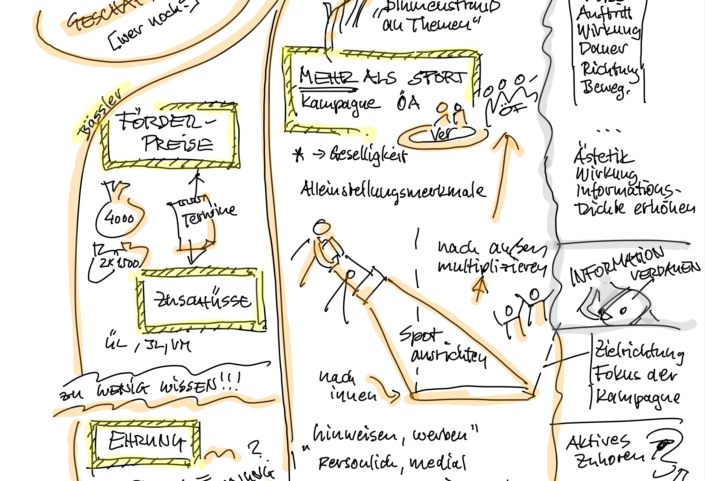 [wer noch?]
Bässler
FÖRDER-
PREISE
4000
2x1500
Termine
ZUSCHÜSSE
ÜL, JL, VM
ZU WENIG WISSEN!!!
EHRUNG
?
"Blumenstrauß
an Themen"
MEHR ALS SPORT
Kampagne ÖA
Ver
ÖF
* → Geselligkeit
Alleinstellungsmerkmale
nach außen
multiplizieren
Spot
ausrichten
nach
innen
"hinweisen, werben"
Persönlich, medial
Auftritt
Wirkung
Dauer
Richtung
Beweg.
...
Ästetik
Wirkung
Informations-
Dichte erhöhen
INFORMATION
VERDAUEN
Zielrichtung
Fokus der
Kampagne
Aktives
Zuhören